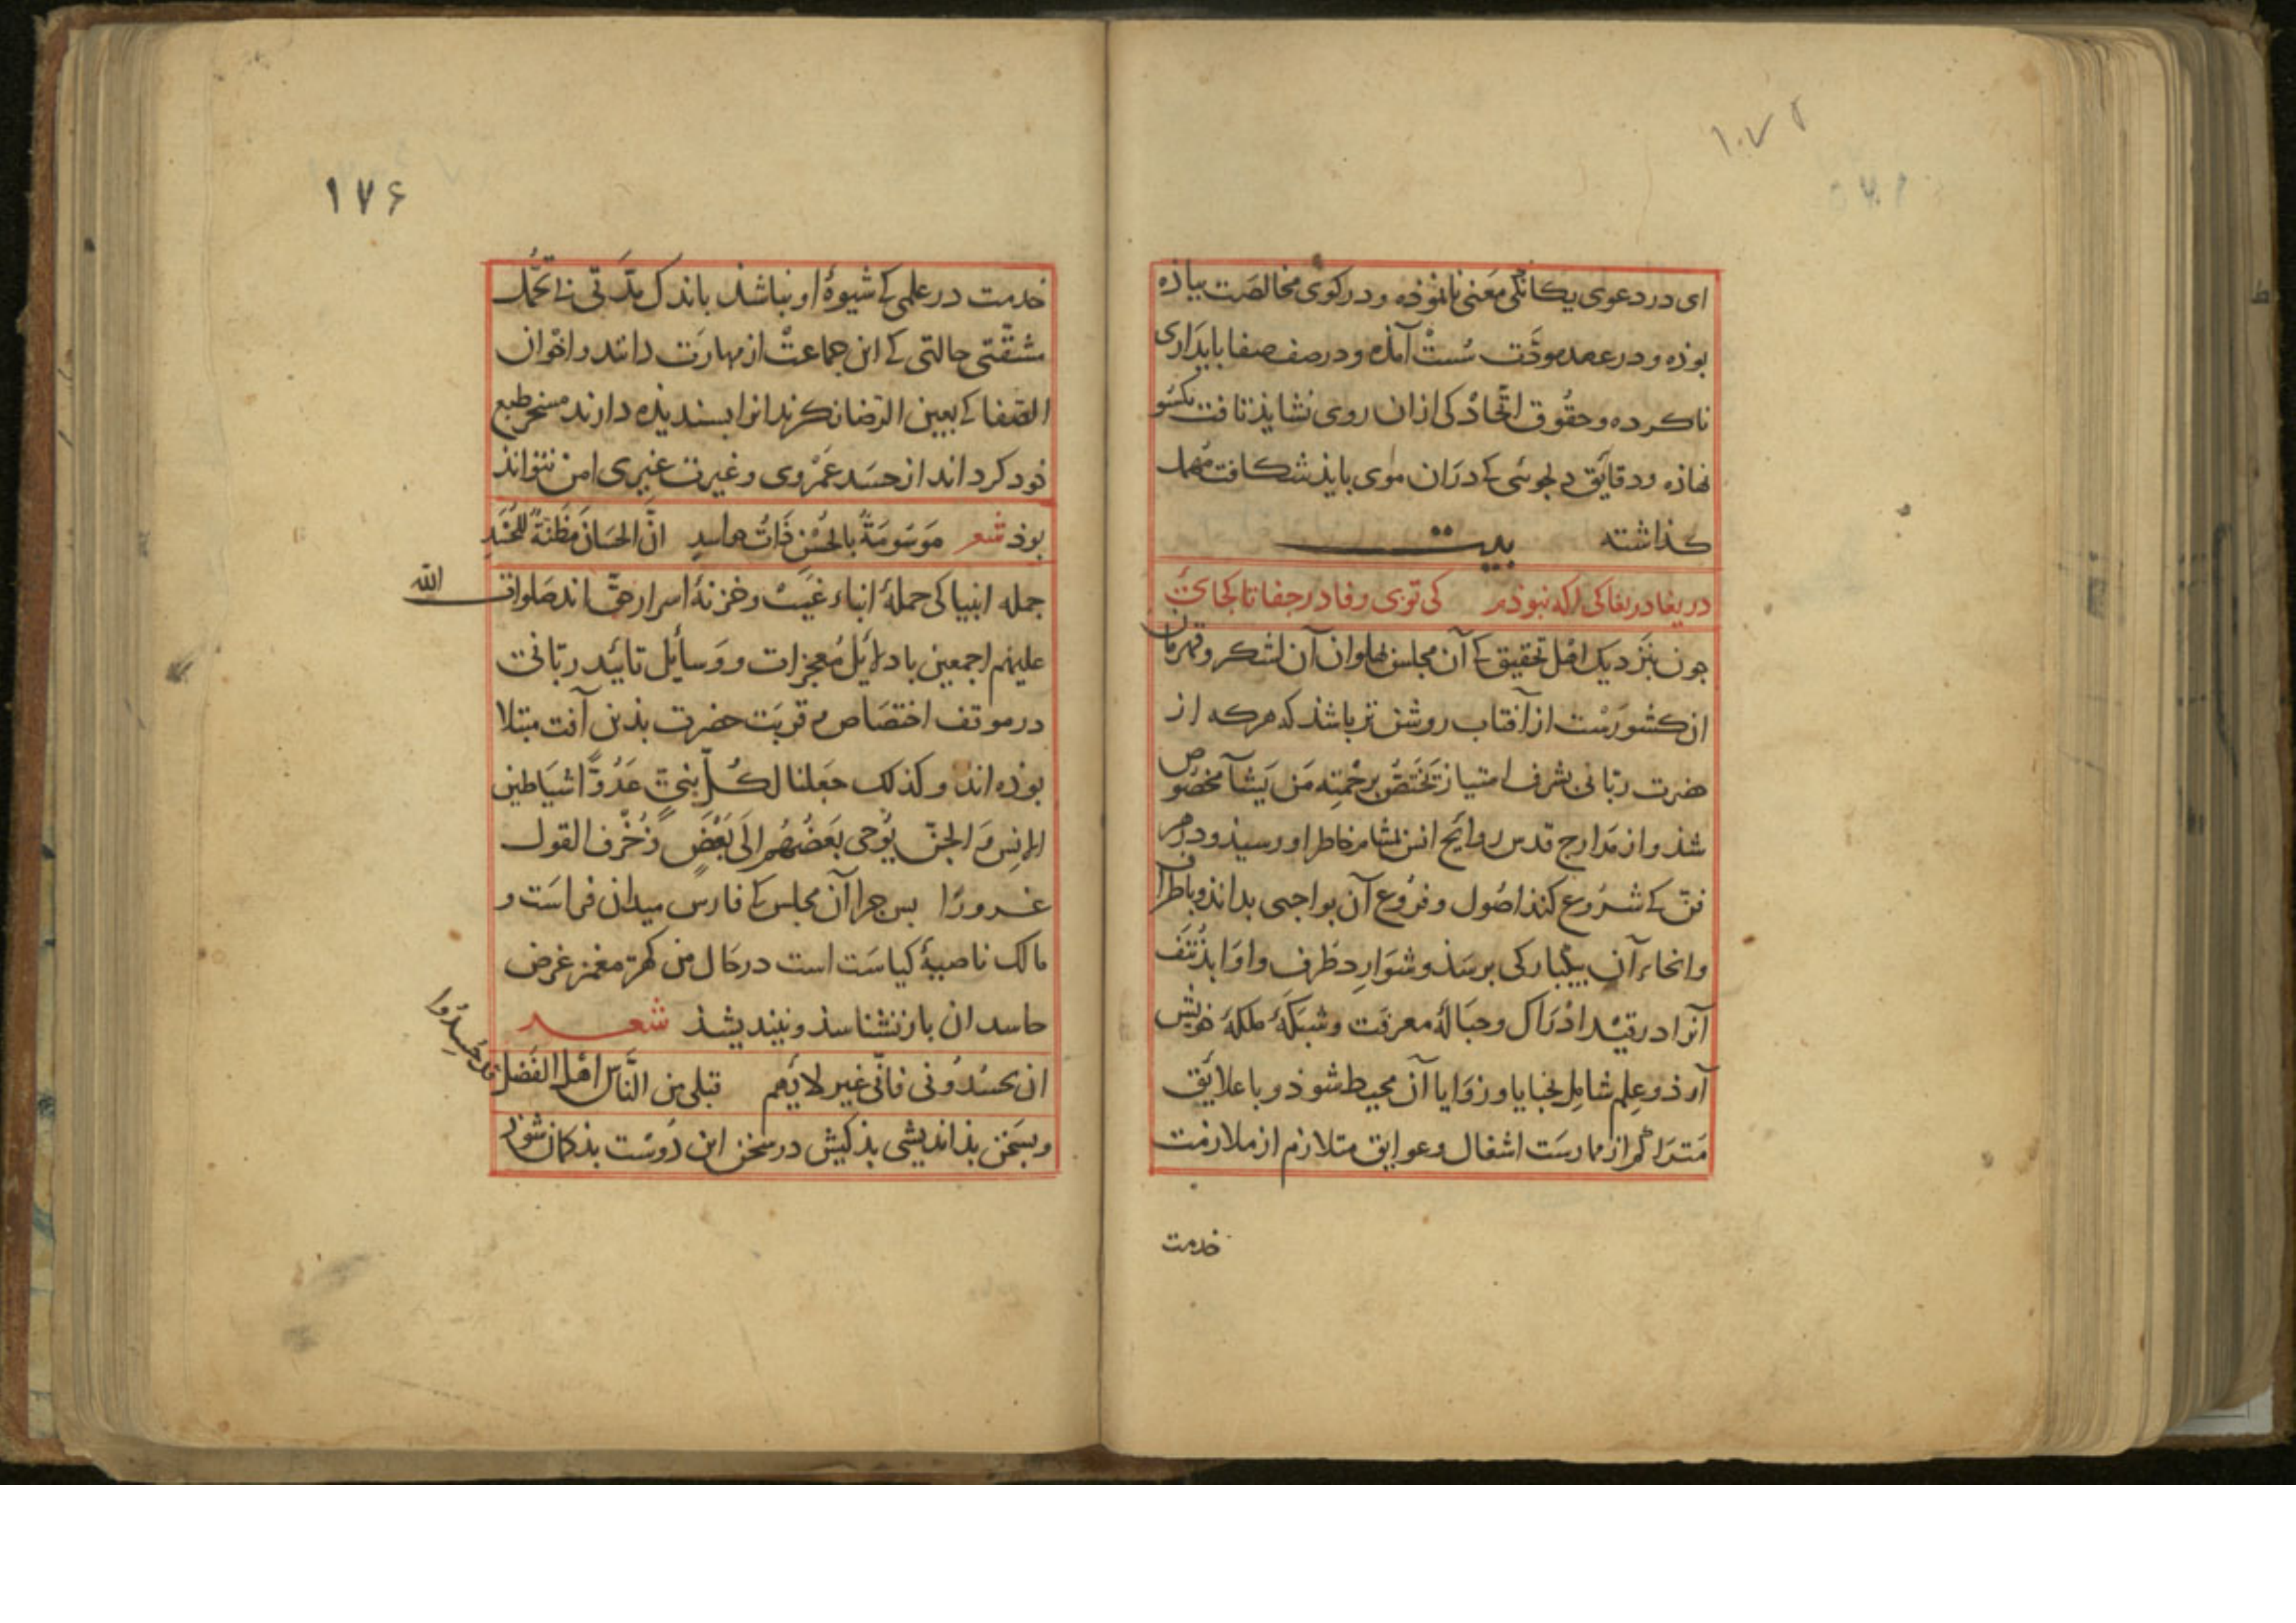 ۱۰۷۲
ای در دعوی یکانکی معنی نانموذه و در کوی مخالصت بیاذه
بوذه و در عهد مودّت سُست آمذه و در صف صفا بایداری
ناکرده و حقُوق اتّحاد کی ازان روی نشایذ تافت یکسُو
نهاذه و دقایق دلجوئی کے دران موی بایذ شکافت مهمل
کذاشته بیت
دریغا دریغا کی اکه نبوذم کی تو بی وفا در جفا تا کجائی
جون بنزدیک اهل تحقیق کے آن مجلس بهلوان آن لشکر و قهرمان
ان کشورست از آفتاب روشن تر باشذ که هرکه از
حضرت ربّانی بشرف امتیاز تختصّ برحمته مَن یَشآ مخصُوص
شذ و از مَدارج قدس روایح انس بمشام خاطر او رسیذ و در هر
فنّ کے شرُوع کند اصُول و فرُوع آن بواجبی بداند و باطراف
وانحاء آن بیکبارکی برسَذ و شوَارد طرف و اوَابد نتف
آنرا در قیْد ادْرَاک و حبَالهٔ معرفت و شبَکهٔ ملکهٔ خویش
آرذ و عِلم شامِل بخبایا و زوَایا آن محیط شوذ و با علایق
مَترَاکم از ممارسَت اشغال و عوایق متلازم از ملازمت
خدمت
۱۷۶
خدمت در علمی کے شیوهٔ او نباشذ باندک مدّتی بی تحمّل
مشقّتی حالتی کے این جماعتْ از مهارَت دانند و اخْوان
الصّفا کے بعین الرّضا نکرند انرا بسندیذه دارند مسخر طبع
خود کرداند از حسَد عَمْروی و غیرت غیری امن نتواند
بوذ شعر مَوسُومَةٌ بالحُسْنِ ذَاتُ حاسدٍ انَّ الحسَانَ مَظنّةٌ للحُسَّدِ
جمله انبیا کی حملهٔ انباء غیَبْ و خزنهٔ اسرار حقّ اند صَلوات الله
علیهم اجمعین با دلایَل مُعجزات و وَسایَل تائید ربّانی
در موقف اختصَاص و قربَت حضرت بذین آفت مبتلا
بوذه اند وکذلک جَعلنا لکُلِّ نبیٍّ عَدُوًّا شیَاطین
الانِس وَ الجنّ یُوحی بَعَضُهُم اِلَی بَعْضٍ زُخْرف القول
غرورًا بس جرا آن مجلس کے فارس میدان فراسَت و
مالک ناصیهٔ کیاسَت است در حَال من کهتر مغمز غرض
حاسدان باز نشناسذ و نیندیشذ شعر
ان یحسُدُونی فانّی غیر لایَمهم قبلی من النَّاس اهْل الفَضل قد حُسِدُوا
و بسَخن بذ اندیشی بذ کیش در سخن این دُوست بذ کمان شوذ